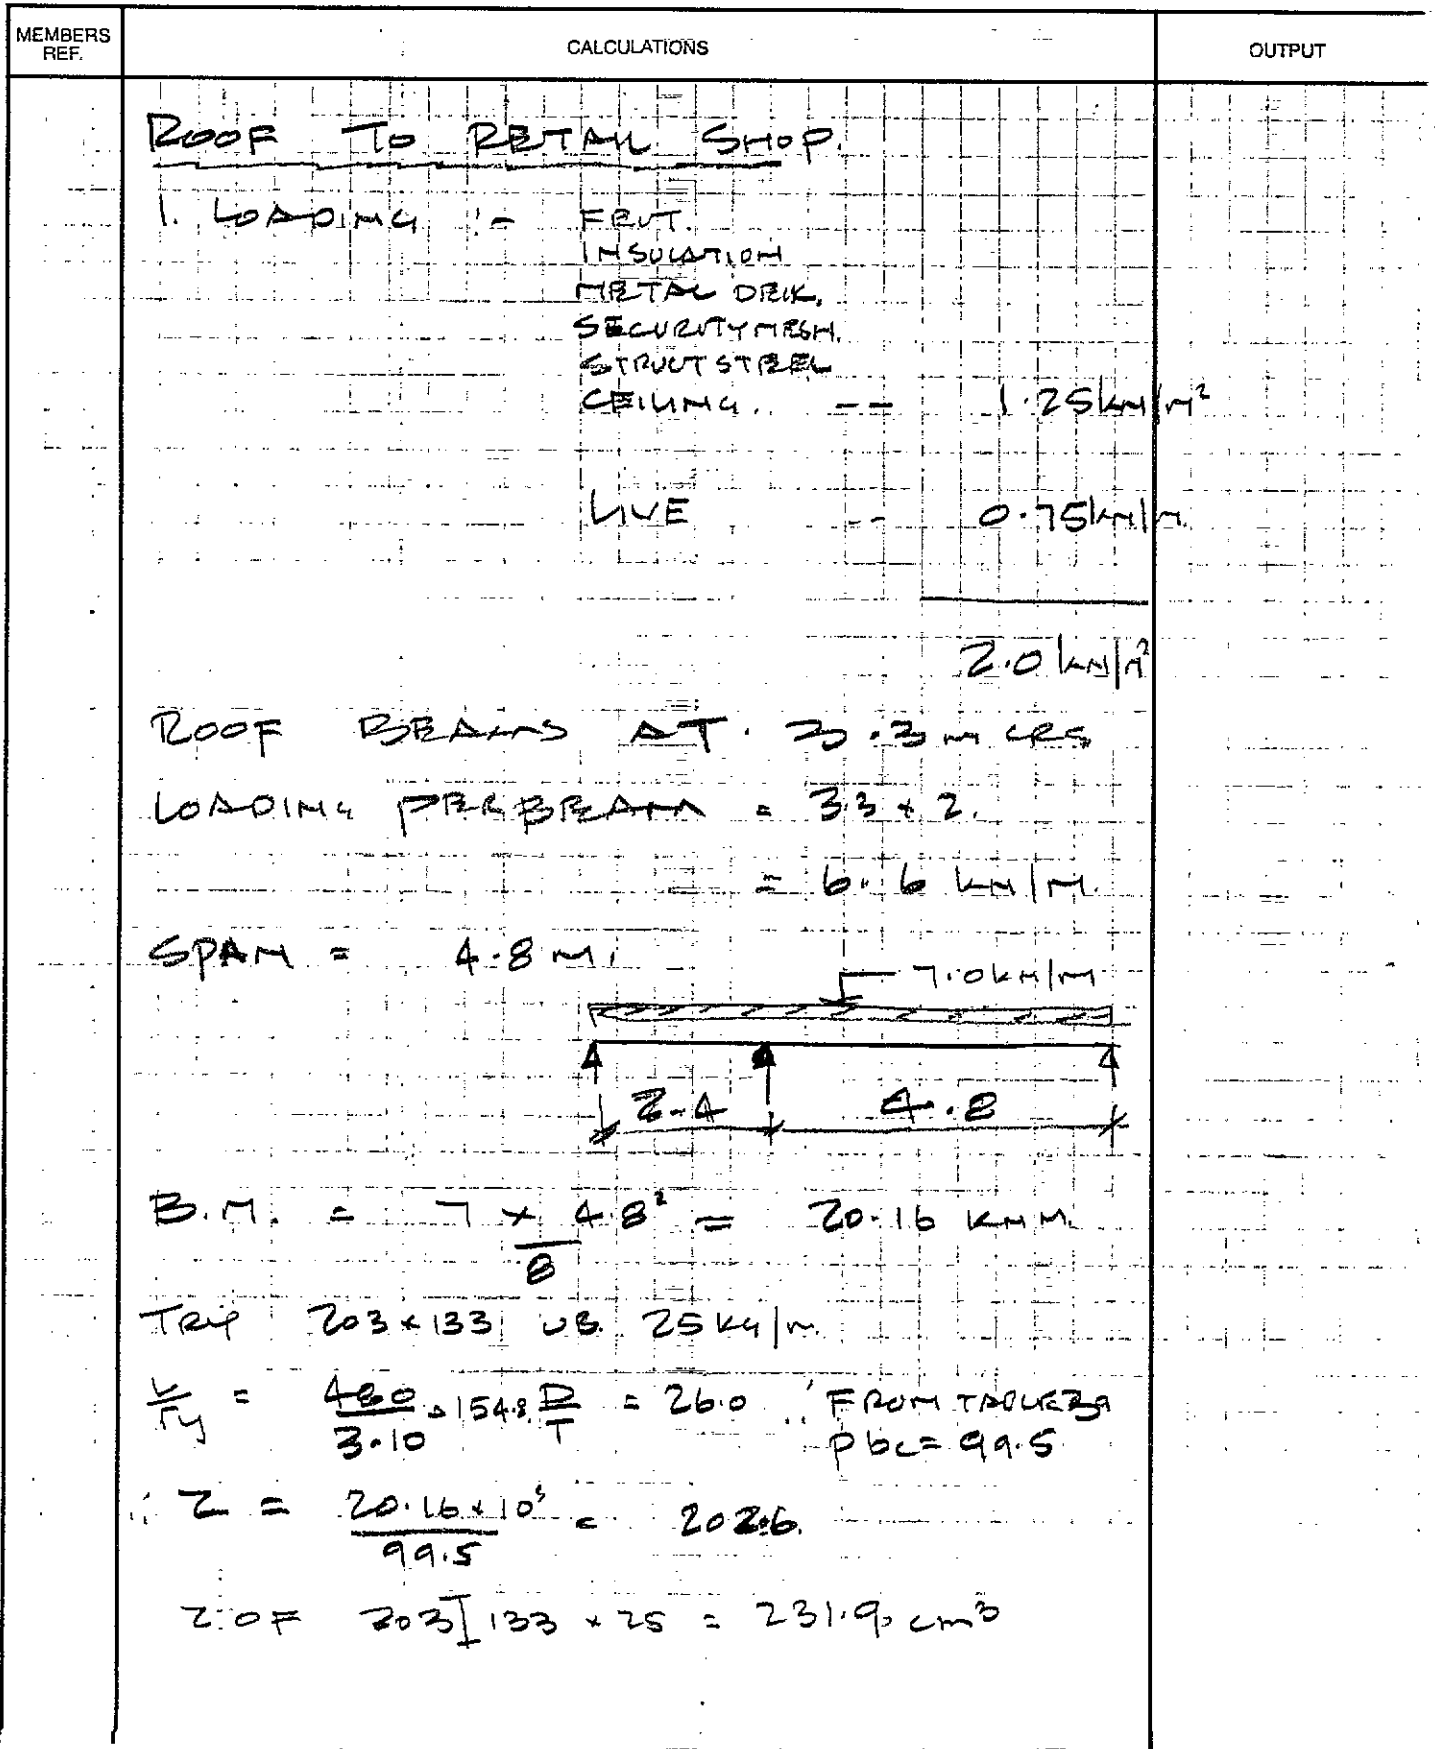 MEMBERS REF.
CALCULATIONS
OUTPUT
ROOF TO RETAIL SHOP.
1. LOADING :- FELT.
INSULATION
METAL DECK.
SECURITY MESH.
STRUCT STEEL
CEILING. -- 1.25 kN/m²
LIVE -- 0.75 kN/m.
2.0 kN/m²
ROOF BEAMS AT. 3.3 m CRS
LOADING PER BEAM = 3.3 × 2.
= 6.6 kN/m.
SPAN = 4.8 m.
7.0 kN/m
2.4 4.8
B.M. = 7 × 4.8² / 8 = 20.16 KNM.
TRY 203 × 133 UB. 25 KG/m.
L/ry = 480/3.10 = 154.8 D/T = 26.0 ∴ FROM TABLE 3a
pbc = 99.5
∴ Z = 20.16 × 10³ / 99.5 = 202.6.
Z OF 203 I 133 × 25 = 231.9 cm³